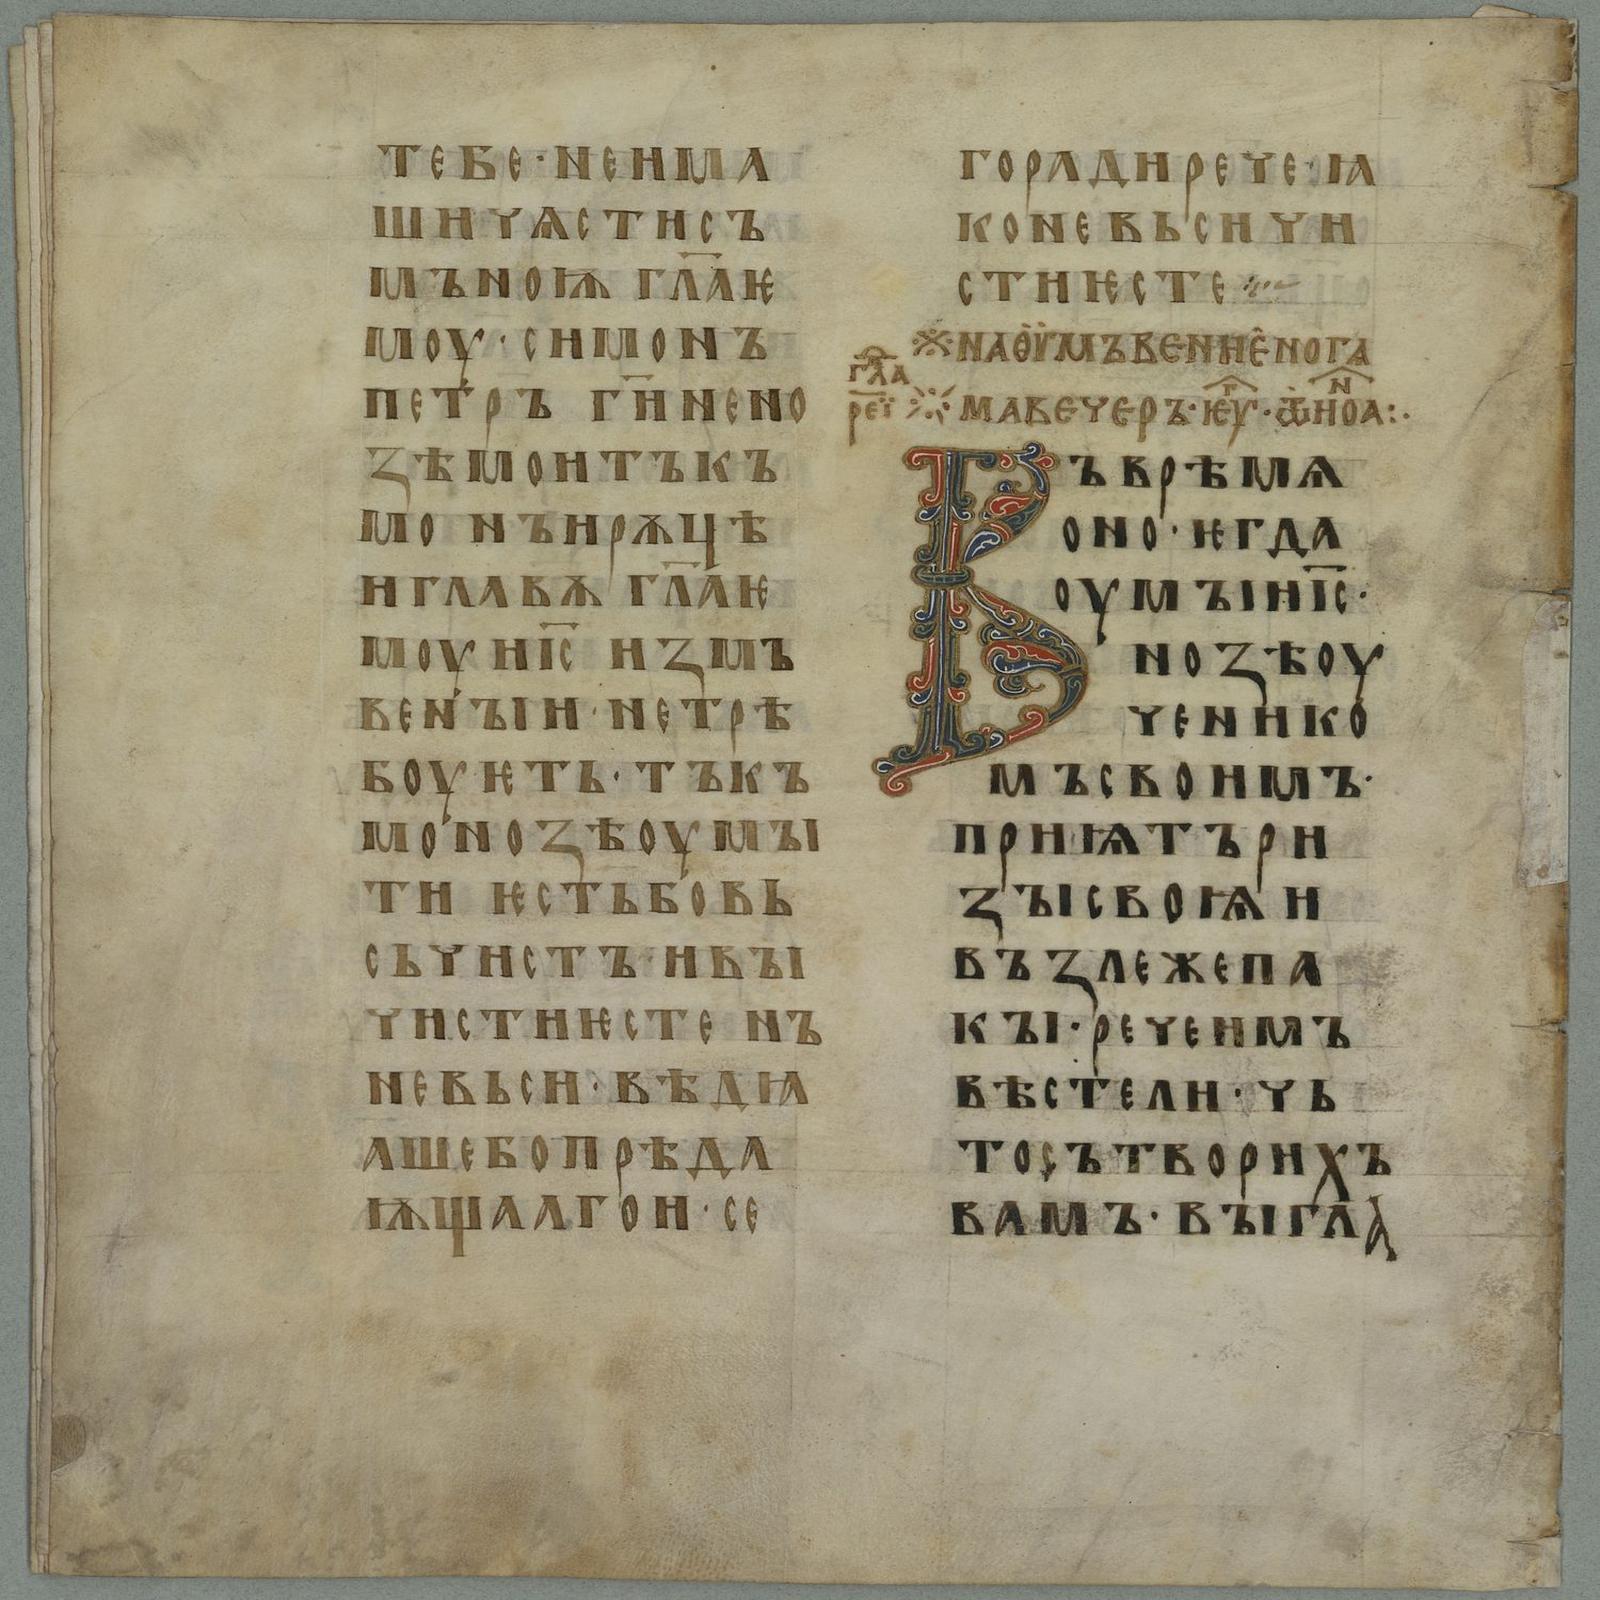 ТЕБЕ·НЕИМА
ШИЧѦСТИСЪ
МЪНОІѪ ГЛ҃АѤ
МОУ·СИМОНЪ
ПЕТРЪ ГИ҃НЕНО
ꙀѢМОИТЪКЪ
МО НЪИРѪЦѢ
ИГЛАВѪ ГЛ҃АѤ
МОУИІ҃С ИꙀМЪ
ВЕНЪІИ·НЕТРѢ
БОУѤТЬ·ТЪКЪ
МОНОꙀѢОУМЪІ
ТИ ѤСТЬБОВЬ
СЬЧИСТЪ·ИВЪІ
ЧИСТИѤСТЕ НЪ
НЕВЬСИ·ВѢДꙖ
АШЕБОПРѢДА
ѬЩААГОИ·СЕ
ГОРАДИРЕЧЕ·Ꙗ
КОНЕВЬСИЧИ
СТИѤСТЕ
НАѲУМЪВЕНИЕНОГА
ГЛА
РЕЇ
МАВЕЧЕРЪ·ѤУ·ѾИОА:·
ВЪВРѢМѦ
ОНО·ѤГДА
ОУМЪІИІ҃С·
НОꙀѢОУ
ЧЕНИКО
МЪСВОИМЪ·
ПРИѨТЪРИ
ꙀЪІСВОѨ И
ВЪꙀЛЕЖЕПА
КЪІ·РЕЧЕИМЪ
ВѢСТЕЛИ·ЧЬ
ТОСЪТВОРИХЪ
ВАМЪ·ВЪІГЛА